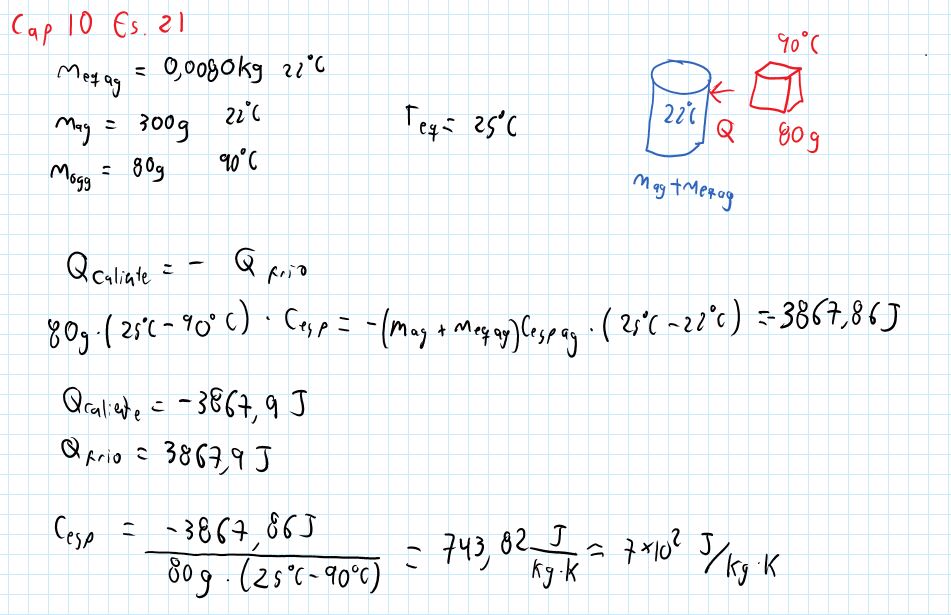 Cap 10 Es. 21
m eq ag = 0,0080kg 22°C
m ag = 300g 22°C
T eq = 25°C
m ogg = 80g 90°C
90°C
22°C
Q
80g
m ag + m eq ag
Q Caliente = - Q frio
80g · (25°C - 90°C) · C esp = -(m ag + m eq ag) C esp ag · (25°C - 22°C) = -3867,86 J
Q caliente = -3867,9 J
Q frio = 3867,9 J
C esp = -3867,86 J / 80g · (25°C - 90°C) = 743,82 J / kg·K = 7×10² J/kg·K